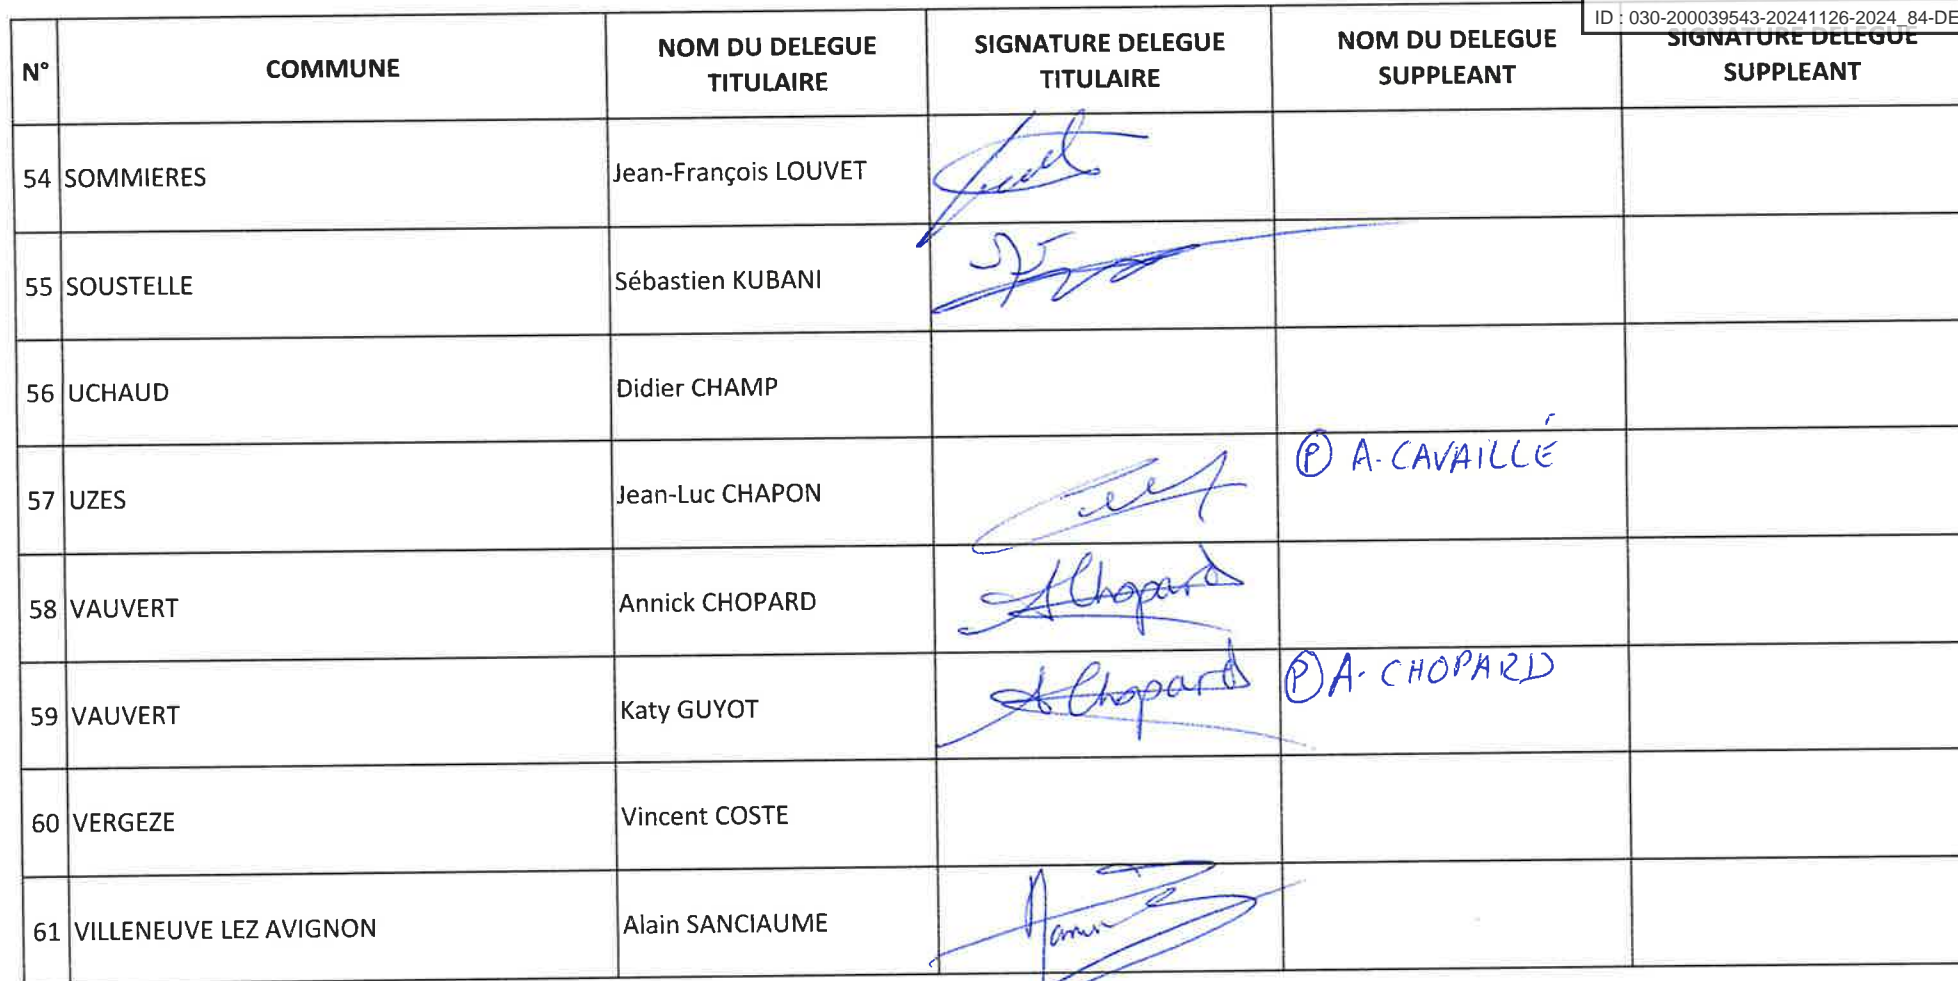 ID : 030-200039543-20241126-2024_84-DE
N° COMMUNE NOM DU DELEGUE TITULAIRE SIGNATURE DELEGUE TITULAIRE NOM DU DELEGUE SUPPLEANT SIGNATURE DELEGUE SUPPLEANT
54 SOMMIERES Jean-François LOUVET
55 SOUSTELLE Sébastien KUBANI
56 UCHAUD Didier CHAMP
57 UZES Jean-Luc CHAPON Ⓟ A. CAVAILLÉ
58 VAUVERT Annick CHOPARD AChopard
59 VAUVERT Katy GUYOT AChopard Ⓟ A. CHOPARD
60 VERGEZE Vincent COSTE
61 VILLENEUVE LEZ AVIGNON Alain SANCIAUME